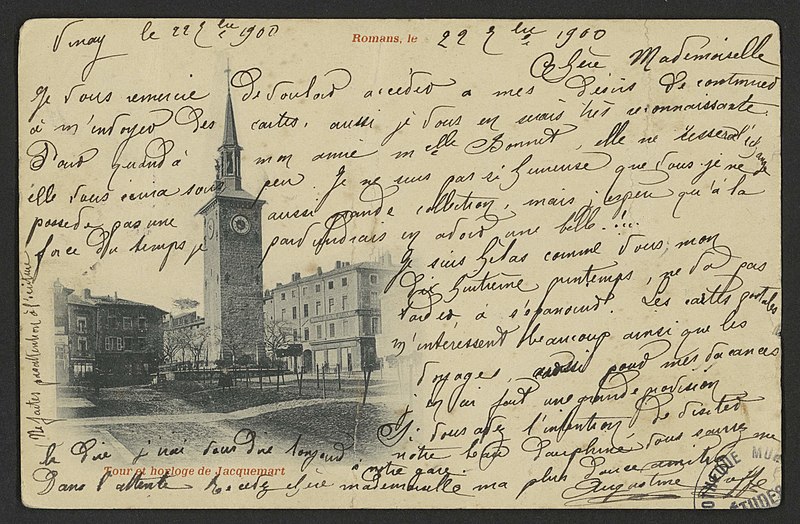 Vinay le 22 7bre 1900
Romans, le 22 7bre 1900
Chère Mademoiselle
Je vous remercie de vouloir accéder a mes désirs de continuer
à m'envoyer des cartes, aussi je vous en serais très reconnaissante.
Pour quand à mon amie melle Bonnet, elle ne cessera l'échange
elle vous écrira sous peu. Je ne suis pas si heureuse que vous je ne
possède pas une aussi grande collection, mais j'espère qu'à la
force du temps je parviendrais en avoir une belle !...
Je suis hélas comme vous mon
dix huitième printemps, ne va pas
tarder à s'épanouir. Les cartes postales
m'intéressent beaucoup ainsi que les
voyages, aussi pour mes vacances
j'en ai fait une grande provision
Si vous avez l'intention de visiter
notre beau Dauphiné vous saurez me
le dire j'irai vous dire bonjour
à notre gare.
Dans l'attente Recevez chère mademoiselle ma plus douce amitié
Augustine
Ne faites pas attention à l'écriture
Tour et horloge de Jacquemart
ÉTUDES